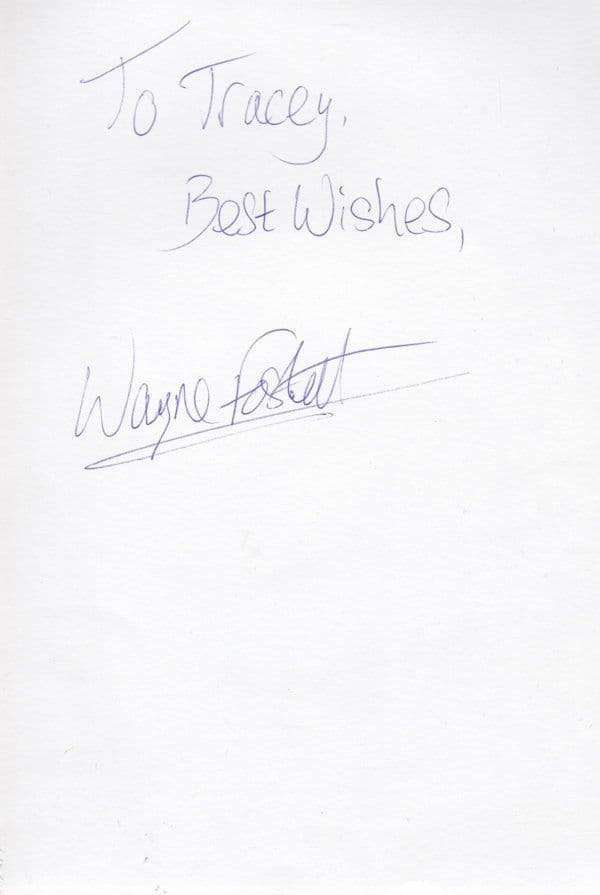 To Tracey,
Best Wishes,
Wayne Foskett